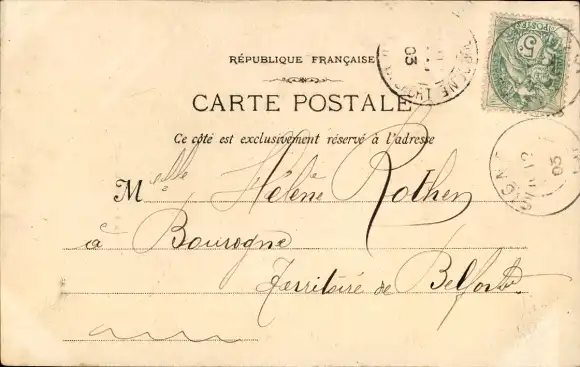 RÉPUBLIQUE FRANÇAISE
CARTE POSTALE
Ce côté est exclusivement réservé à l'adresse
Melle Hélène Rothen
à Bourogne
Territoire de Belfort
03
03
5